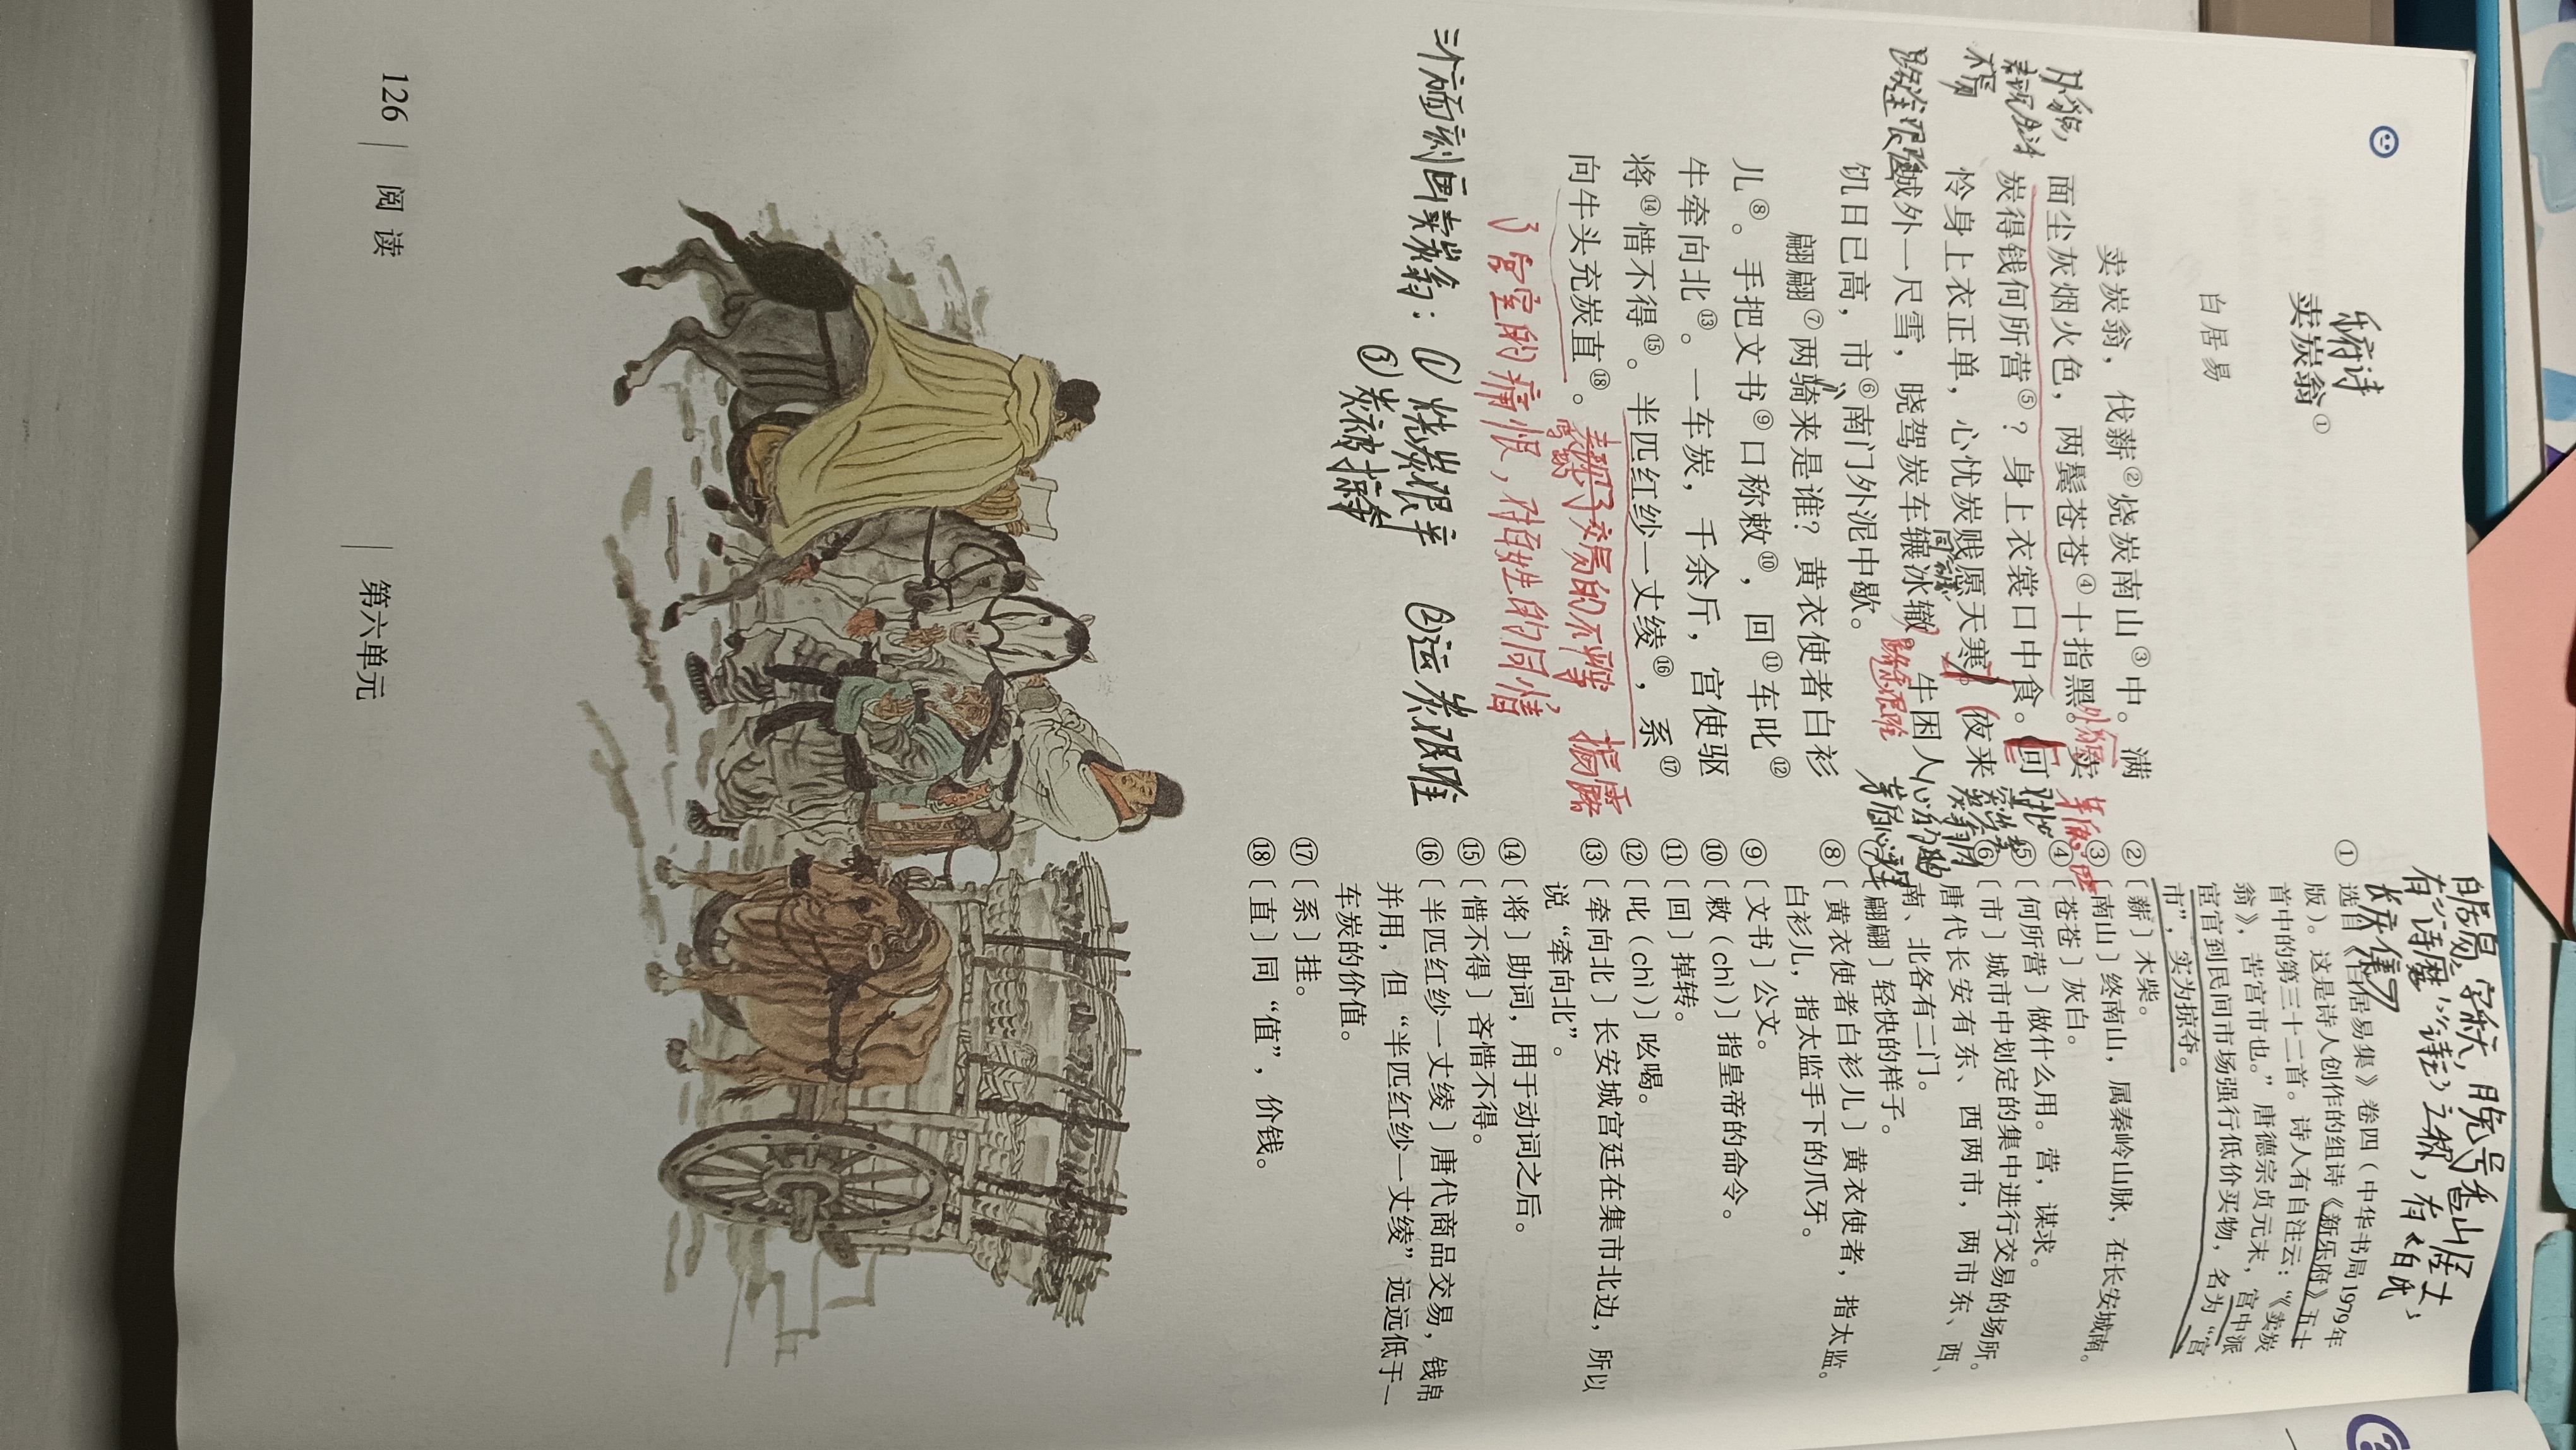 乐府诗
卖炭翁①
白居易
卖炭翁，伐薪②烧炭南山③中。满
面尘灰烟火色，两鬓苍苍④十指黑。卖
炭得钱何所营⑤？身上衣裳口中食。可
怜身上衣正单，心忧炭贱愿天寒。夜来
城外一尺雪，晓驾炭车辗冰辙。牛困人
饥日已高，市⑥南门外泥中歇。
翩翩⑦两骑来是谁？黄衣使者白衫
儿⑧。手把文书⑨口称敕⑩，回⑪车叱⑫
牛牵向北⑬。一车炭，千余斤，宫使驱
将⑭惜不得⑮。半匹红纱一丈绫⑯，系⑰
向牛头充炭直⑱。
外貌，
路途很艰
外貌
路途很艰难
表现了交易的不平等，揭露
了官室的痛恨，对百姓的同情
三个方面刻画卖炭翁：①烧炭很辛 ②运炭很难
③炭被掠夺
字乐天，晚号香山居士，
有“诗魔”“诗王”之称，有《白氏
长庆集》
①选自《白居易集》卷四（中华书局1979年
版）。这是诗人创作的组诗《新乐府》五十
首中的第三十二首。诗人有自注云：“《卖炭
翁》，苦宫市也。”唐德宗贞元末，宫中派
宦官到民间市场强行低价买物，名为“宫
市”，实为掠夺。
②〔薪〕木柴。
③〔南山〕终南山，属秦岭山脉，在长安城南。
④〔苍苍〕灰白。
⑤〔何所营〕做什么用。营，谋求。
⑥〔市〕城市中划定的集中进行交易的场所。
唐代长安有东、西两市，两市东、西、
南、北各有二门。
⑦〔翩翩〕轻快的样子。
⑧〔黄衣使者白衫儿〕黄衣使者，指太监。
白衫儿，指太监手下的爪牙。
⑨〔文书〕公文。
⑩〔敕（chì）〕指皇帝的命令。
⑪〔回〕掉转。
⑫〔叱（chì）〕吆喝。
⑬〔牵向北〕长安城宫廷在集市北边，所以
说“牵向北”。
⑭〔将〕助词，用于动词之后。
⑮〔惜不得〕吝惜不得。
⑯〔半匹红纱一丈绫〕唐代商品交易，钱帛
并用，但“半匹红纱一丈绫”远远低于一
车炭的价值。
⑰〔系〕挂。
⑱〔直〕同“值”，价钱。
126 阅读 第六单元